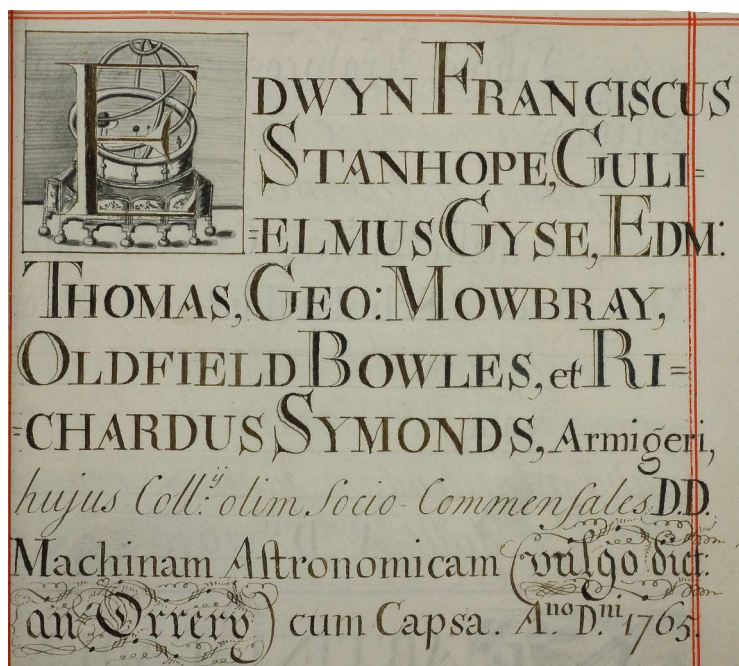 EDWYN FRANCISCUS
STANHOPE, GULI=
=ELMUS GYSE, EDM:
THOMAS, GEO: MOWBRAY,
OLDFIELD BOWLES, et RI=
=CHARDUS SYMONDS, Armigeri,
hujus Coll:ij olim Socio-Commenſales D.D.
Machinam Aſtronomicam (vulgo dict:
an Orrery) cum Capsa. A.no D.ni 1765.